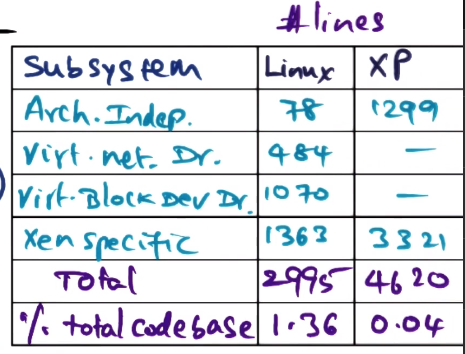 #lines
Subsystem Linux XP
Arch. Indep. 78 1299
Virt. net. Dr. 484 —
Virt. Block Dev Dr. 1070 —
Xen specific 1363 3321
Total 2995 4620
% total codebase 1.36 0.04